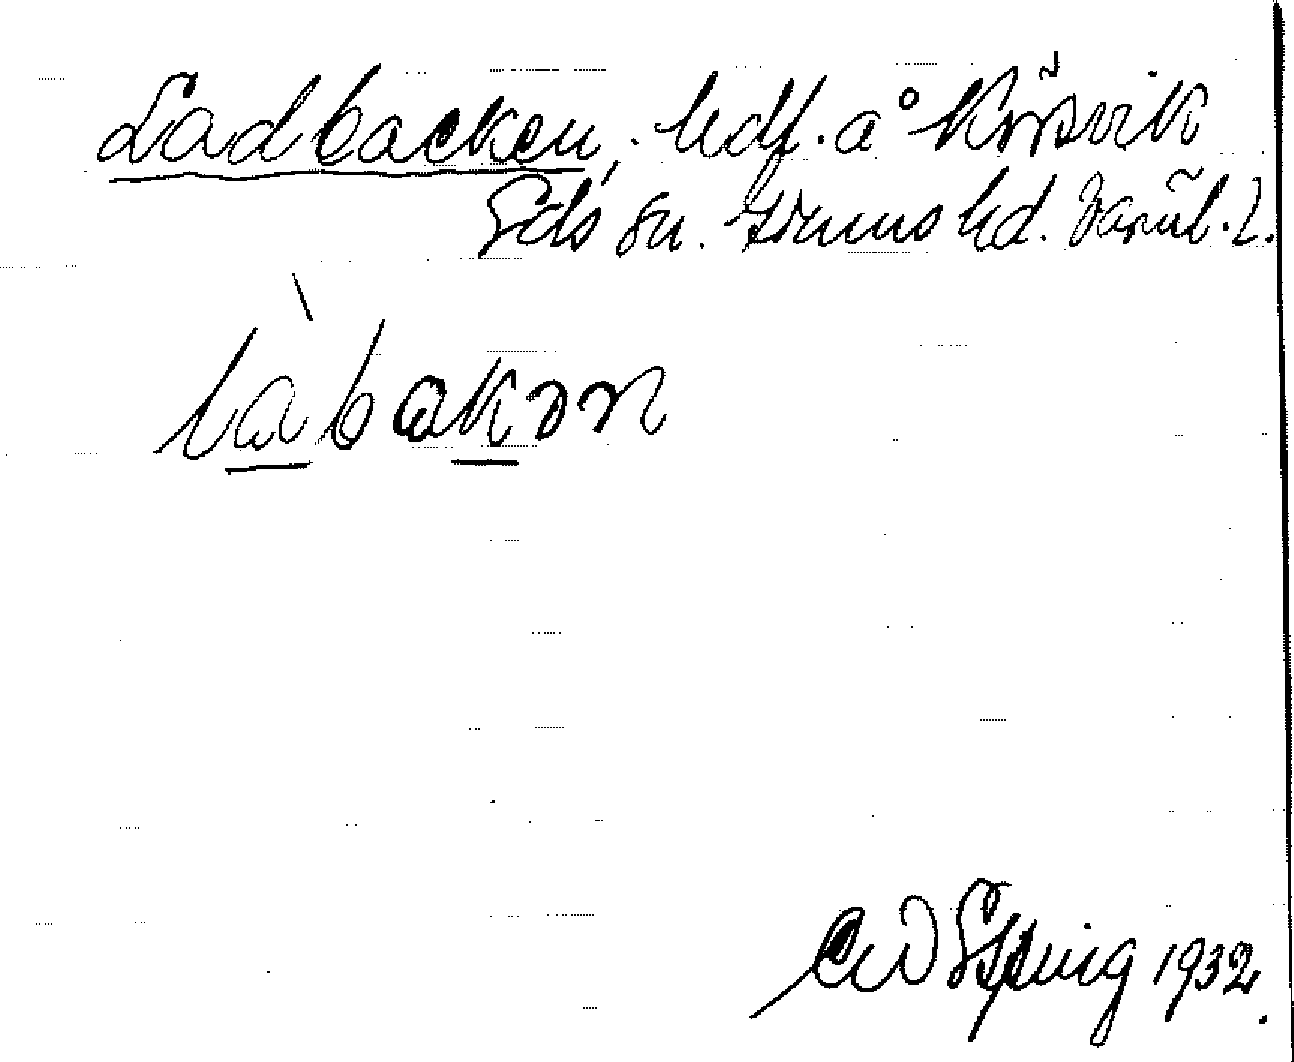 Ladbacken, hdl. å Körsvik
Eds sn. Grums hd. Värml. l.
làbakən
E W Esping 1932.